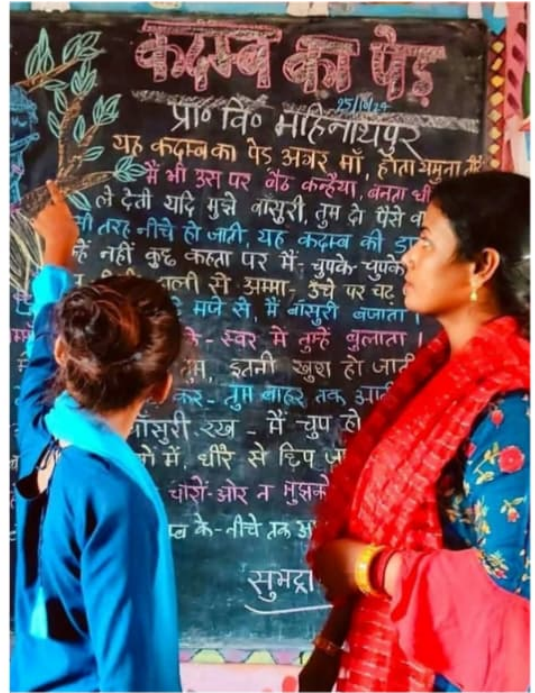 कदम्ब का पेड़
25/10/24
प्रा० वि० महिनाथपुर
यह कदम्ब का पेड अगर माँ, होता यमुना
मैं भी उस पर बैठ कन्हैया, बनता
ले देती यदि मुझे बांसुरी, तुम दो पैसे
तरह नीचे हो जाती, यह कदम्ब की
नहीं कुछ कहता पर मैं- चुपके चुपके
से अम्मा- ऊँचे पर चढ़
मजे से, मैं बाँसुरी बजाता ।
स्वर में तुम्हें बुलाता ।
तुम, इतनी खुश हो जाती
कर- तुम बाहर तक
रख - मैं चुप हो
में, धीरे से छिप
चारों-ओर न मुझको
के-नीचे तक
सुभद्रा